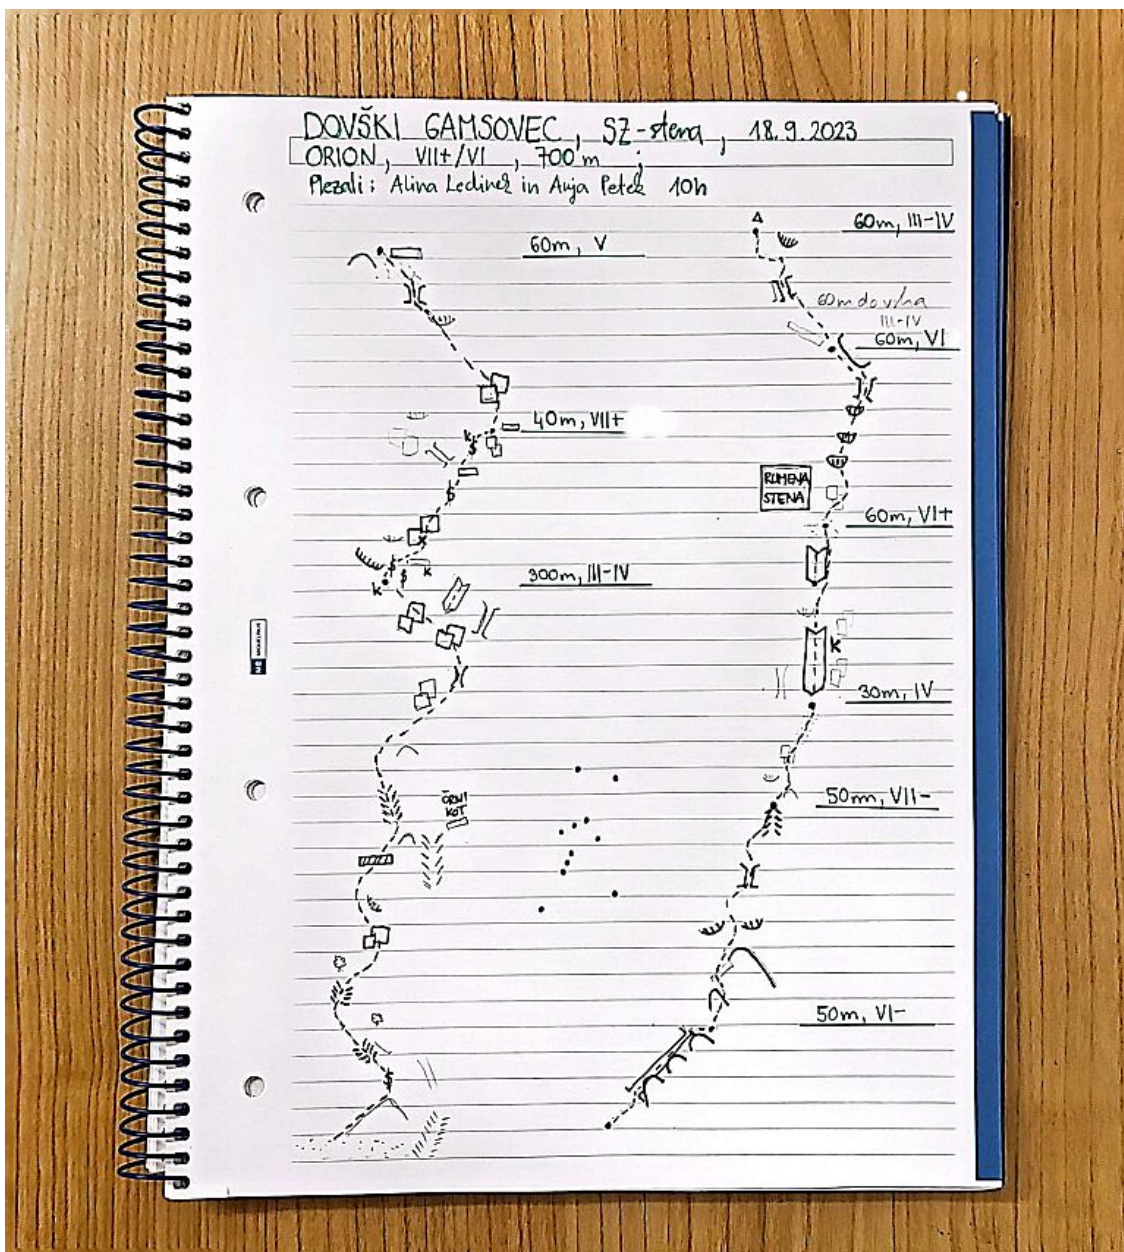 DOVŠKI GAMSOVEC, SZ-stena, 18.9.2023
ORION, VII+/VI, 700 m;
Plezali: Alina Ledinek in Anja Petek 10h
60m, V
40m, VII+
300m, III-IV
ČRNI
KOT
60m, III-IV
60m do vrha
III-IV
60m, VI
RUMENA
STENA
60m, VI+
K
30m, IV
50m, VII-
50m, VI-
K
K
K
K